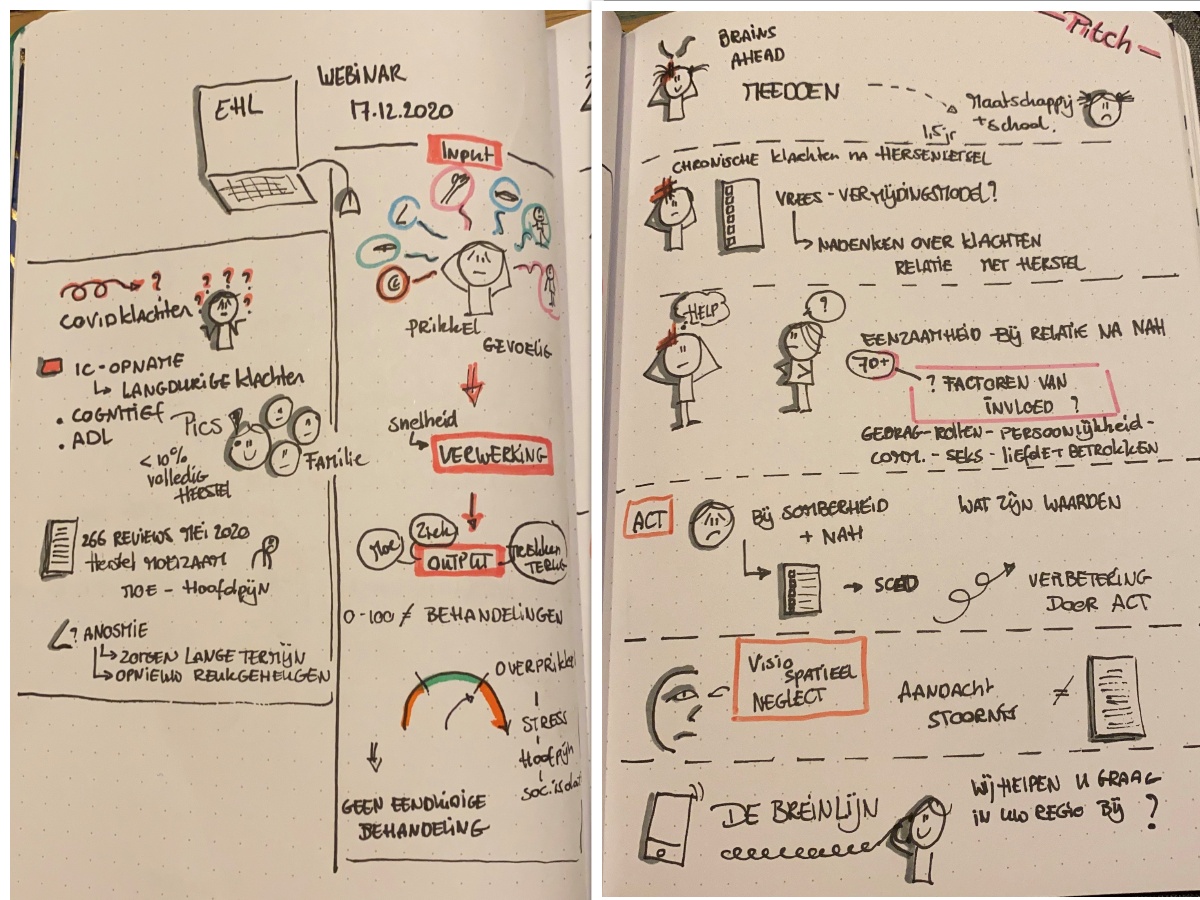 EHL
WEBINAR
17.12.2020
?
COVID klachten
? ? ? ? ? ?
IC-OPNAME
↳ LANGDURIGE klachten
. COGNITIEF
. ADL
PICS
Familie
< 10%
volledig
HERSTEL
266 REVIEWS MEI 2020
Herstel MOEIZAAM
MOE - Hoofdpijn
? ANOSMIE
↳ ZORGEN LANGE TERMIJN
↳ OPNIEUW REUKGEHEUGEN
Input
PRikkel
GEVOELIG
Snelheid
VERWERKING
MOE
Ziek
OUTPUT
TREKKEN
TERUG
0-100 ≠ BEHANDELINGEN
OVERPRikkel
STRESS
Hoofpijn
GEEN EENDUIDIGE
BEHANDELING
- Pitch -
BRAINS
AHEAD
MEEDOEN
Maatschappij
+ school.
1,5 jr
CHRONISCHE klachten na HERSENLETSEL
VREES - VERMIJDINGSMODEL?
↳ NADENKEN OVER KLACHTEN
RELATIE MET HERSTEL
HELP
?
EENZAAMHEID BIJ RELATIE NA NAH
70+
? FACTOREN VAN
INVLOED ?
GEDRAG - Rollen - PERSOONLIJKheid -
COMM. - SEKS - liefde + BETROKKEN
ACT
Bij SOMBERHEID
+ NAH
WAT ZIJN WAARDEN
→ SCED
VERBETERING
DOOR ACT
Visio
SPATIEEL
NEGLECT
AANDACHT
STOORNIS
≠
DE BREINLIJN
WIJ HELPEN U GRAAG
IN UW REGIO BIJ ?